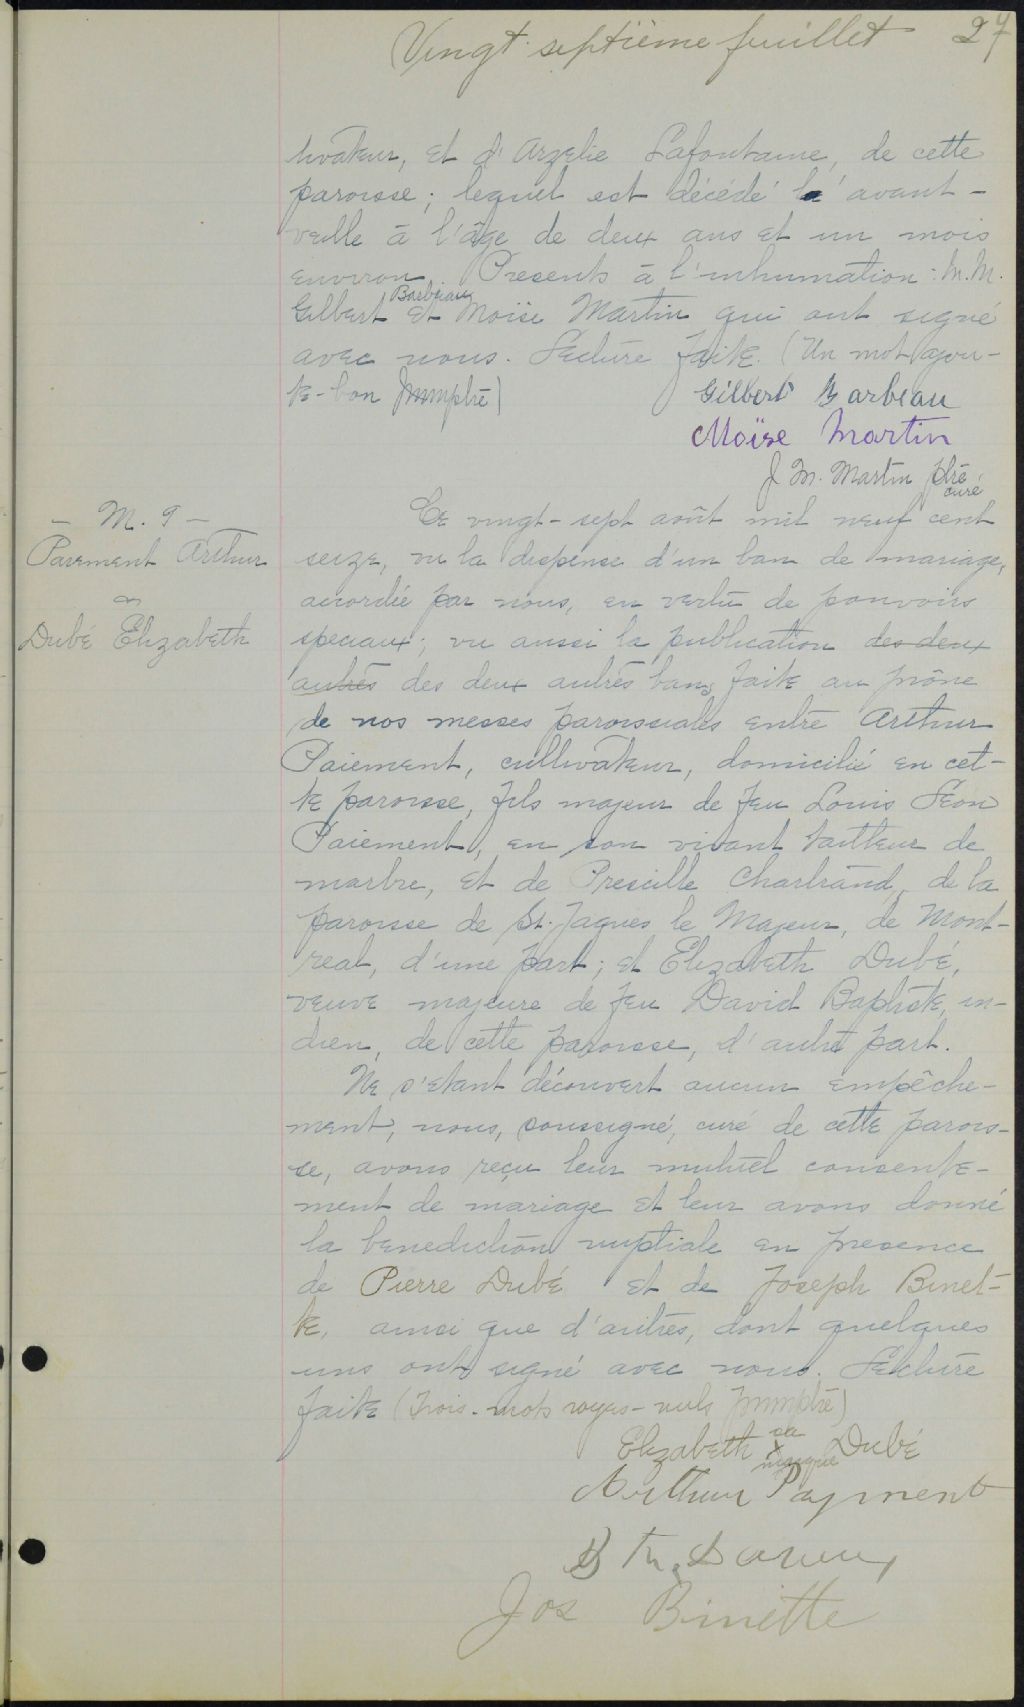 Vingt septième feuillet 27
tivateur, et d'Arzelie Lafontaine, de cette
paroisse; lequel est décédé l'avant-
veille à l'âge de deux ans et un mois
environ. Presents à l'inhumation: M.M.
Barbeau
Gilbert et Moïse Martin qui ont signé
avec nous. Lecture faite. (Un mot ajou-
té-bon Jmmptre)
Gilbert Barbeau
Moïse Martin
J M. Martin ptre
curé
- M. 9 -
Paiement Arthur
&
Dubé Elizabeth
Le vingt-sept août mil neuf cent
seize, vu la dispense d'un ban de mariage,
accordée par nous, en vertu de pouvoirs
speciaux; vu aussi la publication des deux
autres des deux autres bans faite au prône
de nos messes paroissiales entre Arthur
Paiement, cultivateur, domicilié en cet-
te paroisse, fils majeur de feu Louis Léon
Paiement, en son vivant tailleur de
marbre, et de Prescille Chartrand, de la
paroisse de St. Jaques le Majeur, de Mont-
real, d'une part; et Elizabeth Dubé,
veuve majeure de feu David Baptiste, in-
dien, de cette paroisse, d'autre part.
Ne s'étant découvert aucun empêche-
ment, nous, soussigné, curé de cette parois-
se, avons reçu leur mutuel consente-
ment de mariage et leur avons donné
la benediction nuptiale en presence
de Pierre Dubé et de Joseph Binet-
te, ainsi que d'autres, dont quelques
uns ont signé avec nous. Lecture
faite (Trois mots rayés-nuls Jmmptre)
Elizabeth sa x marque Dubé
Arthur Payment
Jos Binette